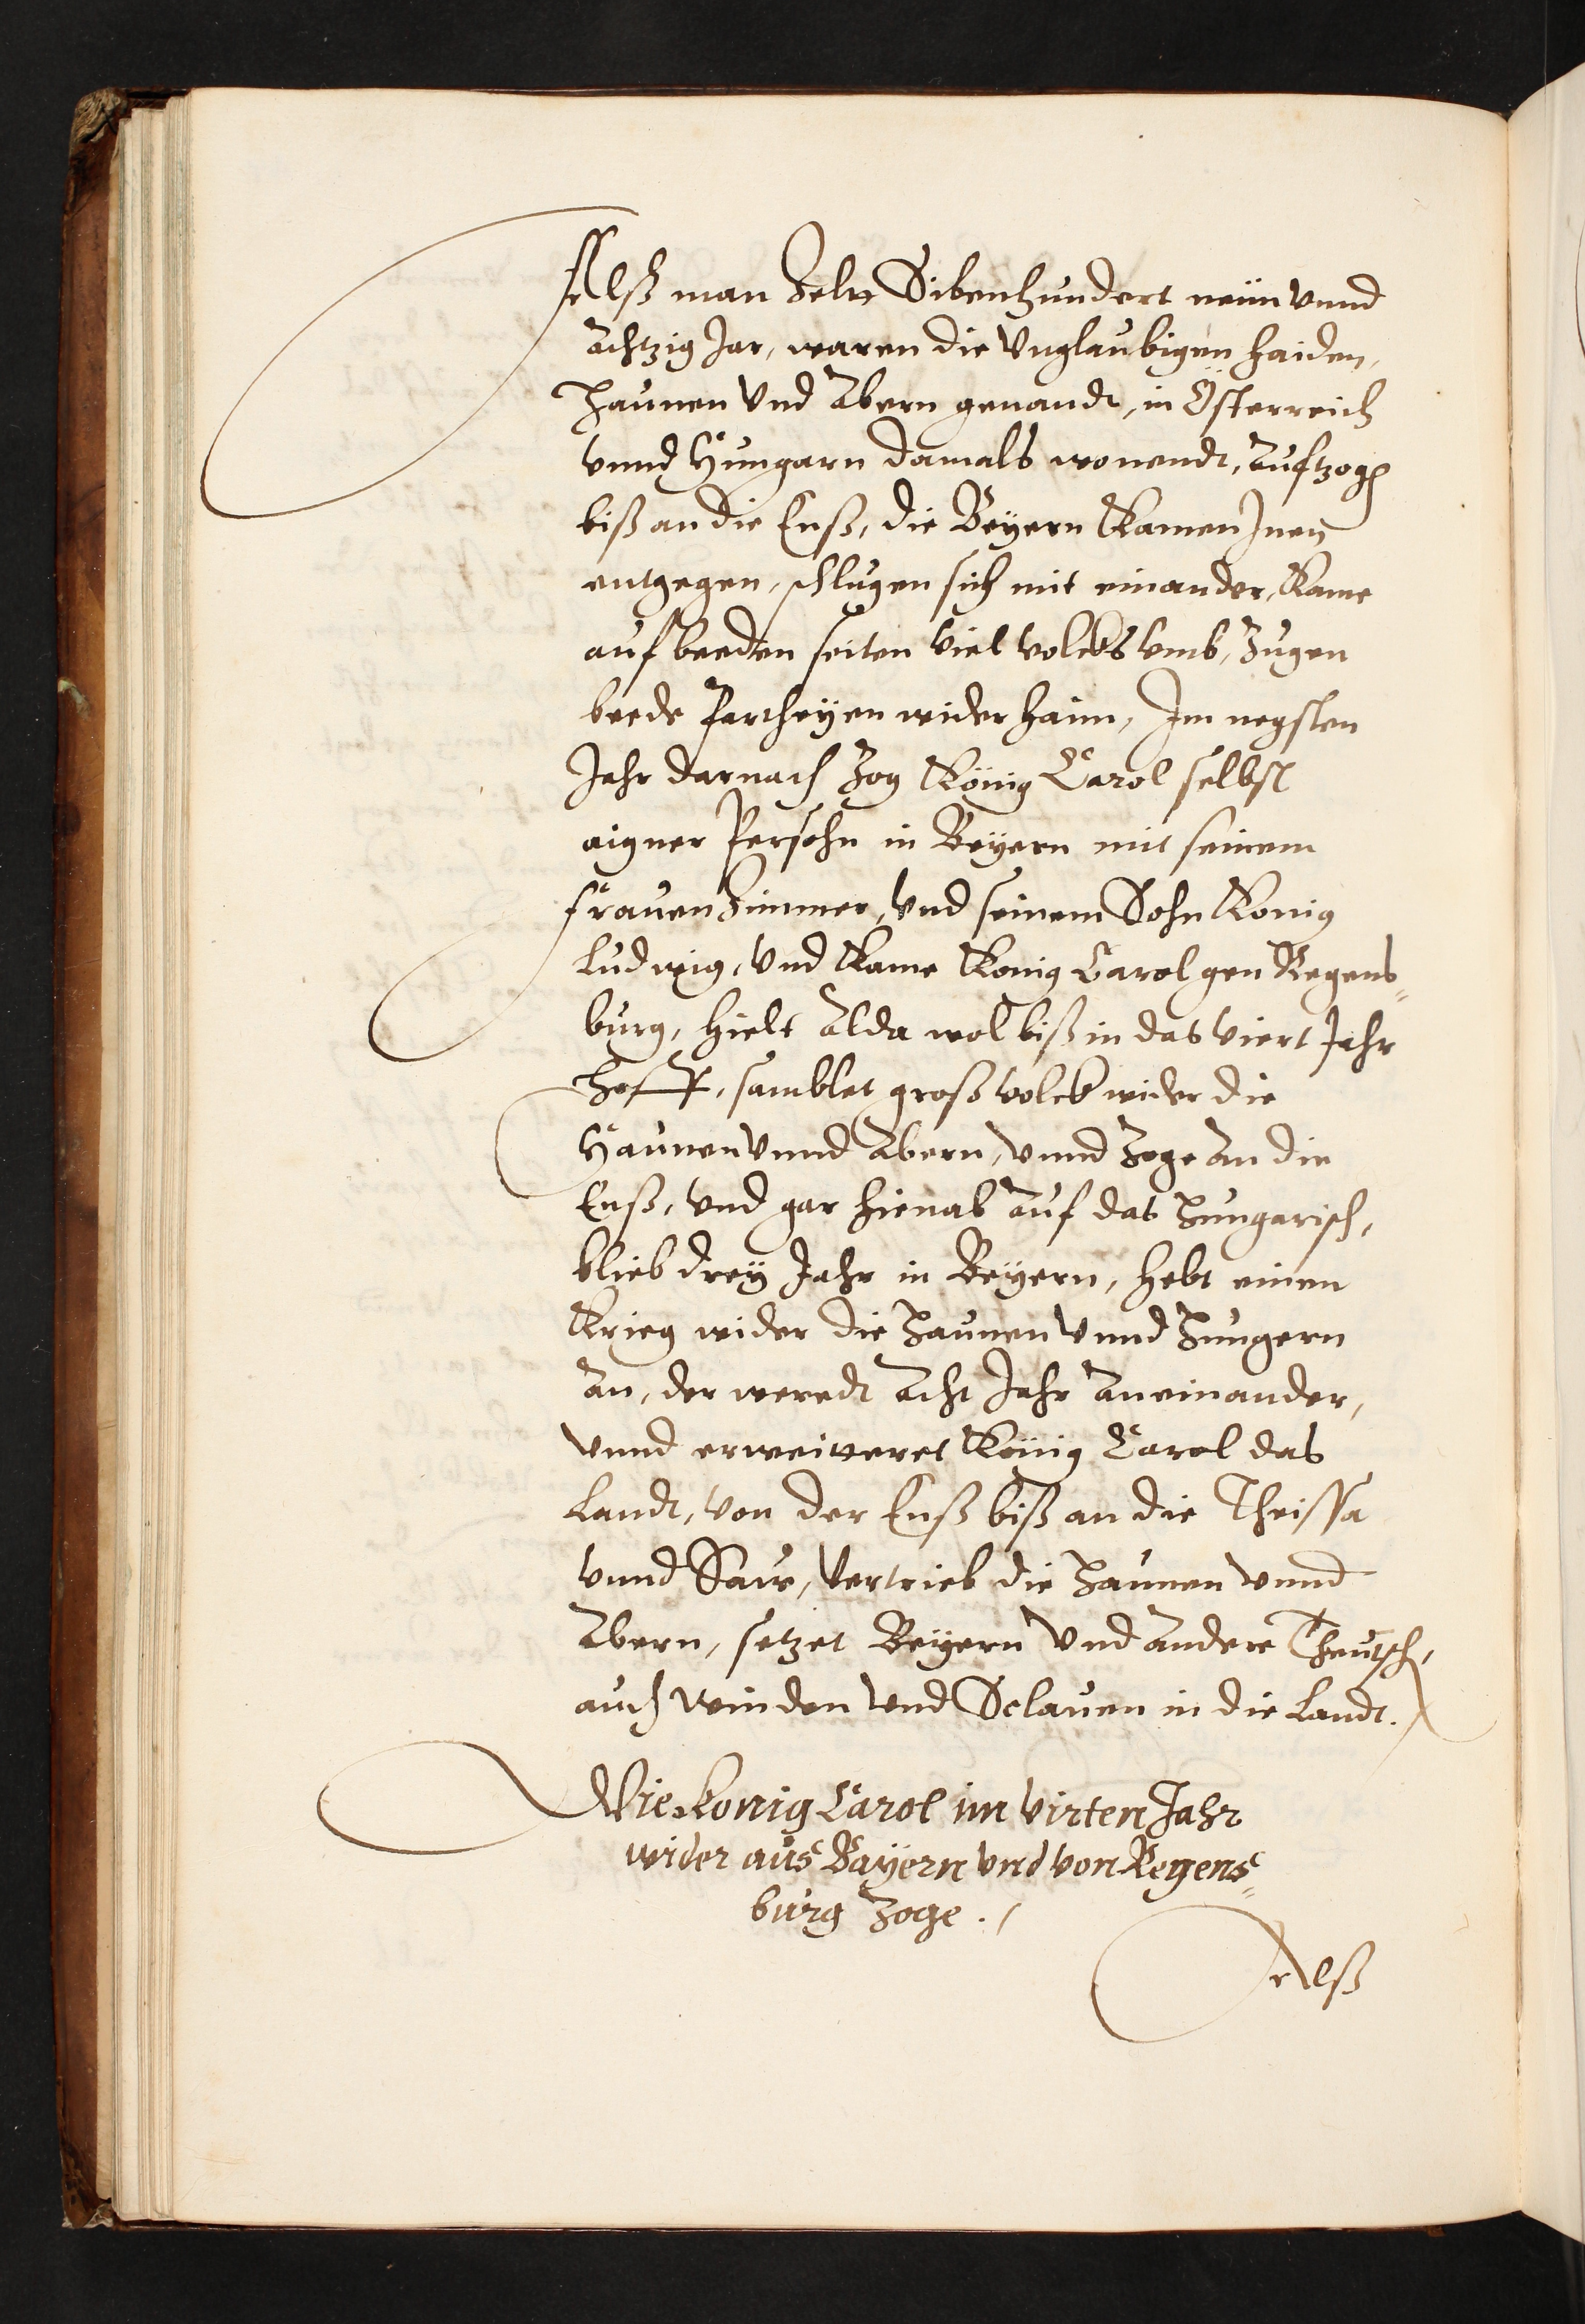 Alß man Zelt Sibenhundert neün vnnd
achtzig Jar, waren die Vnglaubigen haiden,
Haunen vnd Abern genandt, in Österreich
vnnd Hungarn damals wonendt, auftzogen
biß an die Enß, die Beÿern kamen Jnen
entgegen, schlugen sich mit einander, kame
auf beeden seiten viel volcks vmb, Zugen
beede Partheÿen wider haim, Im negsten
Jahr darnach Zog König Carol selbst
aigner Persohn in Beÿern mit seinem
frauenZimmer, vnd seinem Sohn Konig
Ludwig, vnd kame Konig Carol gen Regens-
burg, hielt alda wol biß in das viert Jahr
Hoff, samblet groß volck wider die
Haunen vnnd Abern, vnnd Zoge an die
Enß, vnd gar hienab auf das Hungarisch,
blieb dreÿ Jahr in Beÿern, hebt einen
Krieg wider die Haunen vnnd Hungern
an, der weredt acht Jahr aneinander,
vnnd erweitteret König Carol das
Landt, von der Enß biß an die Theissa
vnnd Saw, vertrieb die Haunen vnnd
Abern, setzet Beÿern vnd andere Theutsch,
auch Winden vnd Sclauen in die Landt.
Wie Konig Carol im virten Jahr
wider aus Baÿern vnd von Regens-
burg Zoge.
Alß